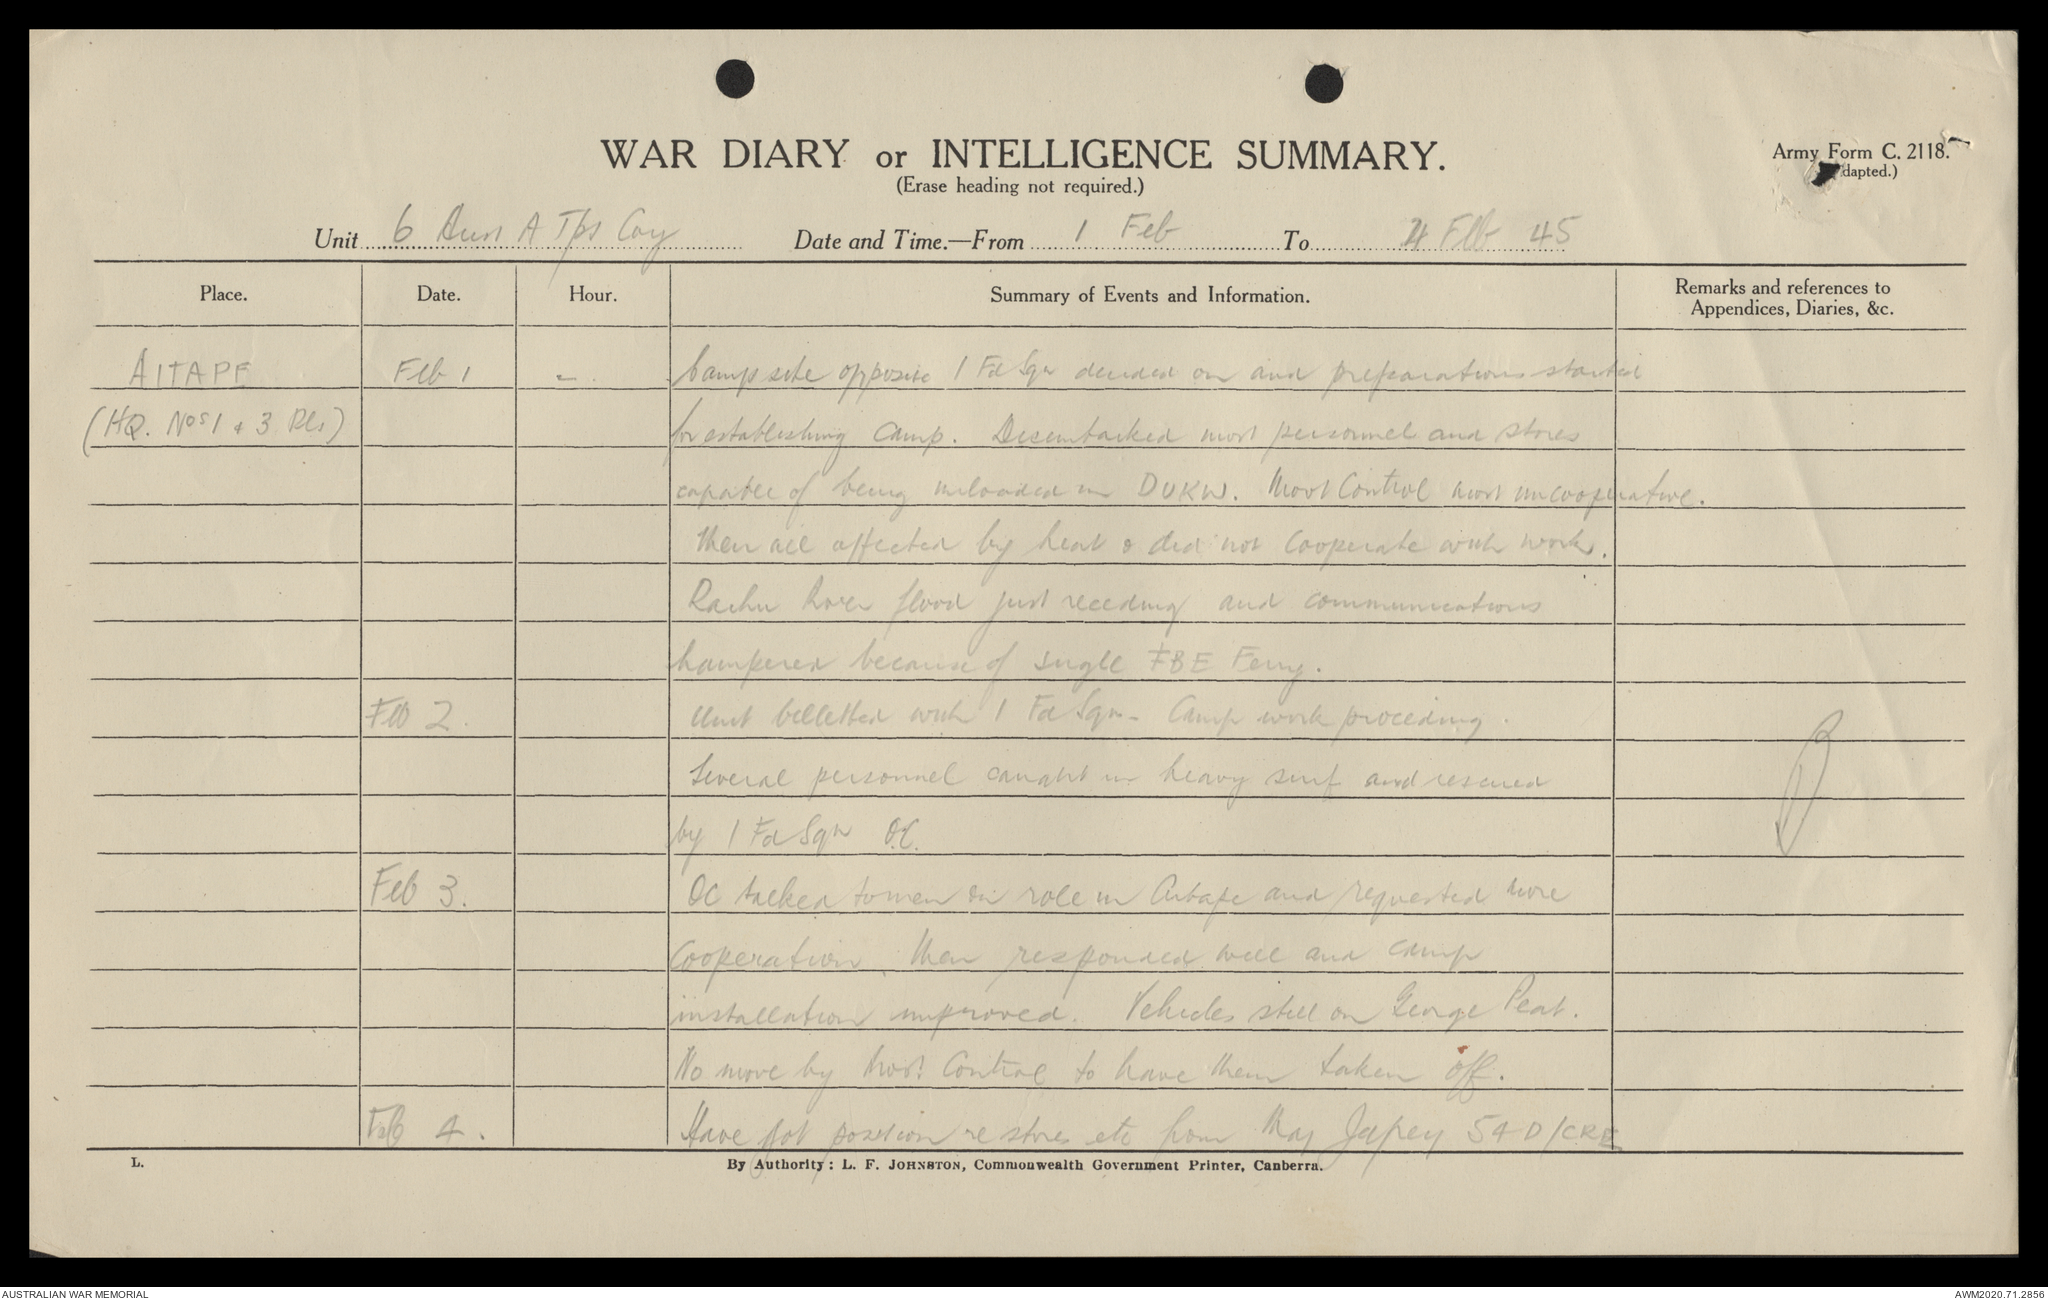 WAR DIARY or INTELLIGENCE SUMMARY.
(Erase heading not required.)
Army Form C. 2118.
dapted.)
Unit 6 Aust A Tps Coy Date and Time.—From 1 Feb To 4 Feb 45
Place. Date. Hour. Summary of Events and Information. Remarks and references to
Appendices, Diaries, &c.
AITAPE Feb 1 - Camp site opposite 1 Fd Sqn decided on and preparations started
(HQ. Nos 1 & 3 Pls) for establishing camp. Disembarked most personnel and stores
capable of being unloaded in DUKW. Movt Control most uncooperative.
Men all affected by heat & did not cooperate with work.
Raihu River flood just receding and communications
hampered because of single FBE Ferry.
Feb 2. Unit billetted with 1 Fd Sqn - Camp work proceeding.
Several personnel caught in heavy surf and rescued
by 1 Fd Sqn O.C.
Feb 3. OC talked to men on role in Aitape and requested more
cooperation. Men responded well and camp
installation improved. Vehicles still on George Peat.
No move by Movt Control to have them taken off.
Feb 4. Have got position re stores etc from Maj 5A D/CRE
L. By Authority: L. F. JOHNSTON, Commonwealth Government Printer, Canberra.
AUSTRALIAN WAR MEMORIAL AWM2020.71.2856